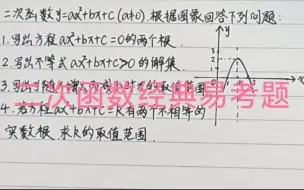 二次函数y=ax²+bx+c (a≠0). 根据图象回答下列问题:
1. 写出方程ax²+bx+c=0的两个根.
2. 写出不等式ax²+bx+c>0的解集.
3. 写出
的取值范围
二次函数经典易考题
4. 若方程ax²+bx+c=k有两个不相等的
实数根. 求k的取值范围.
y
3
2
1